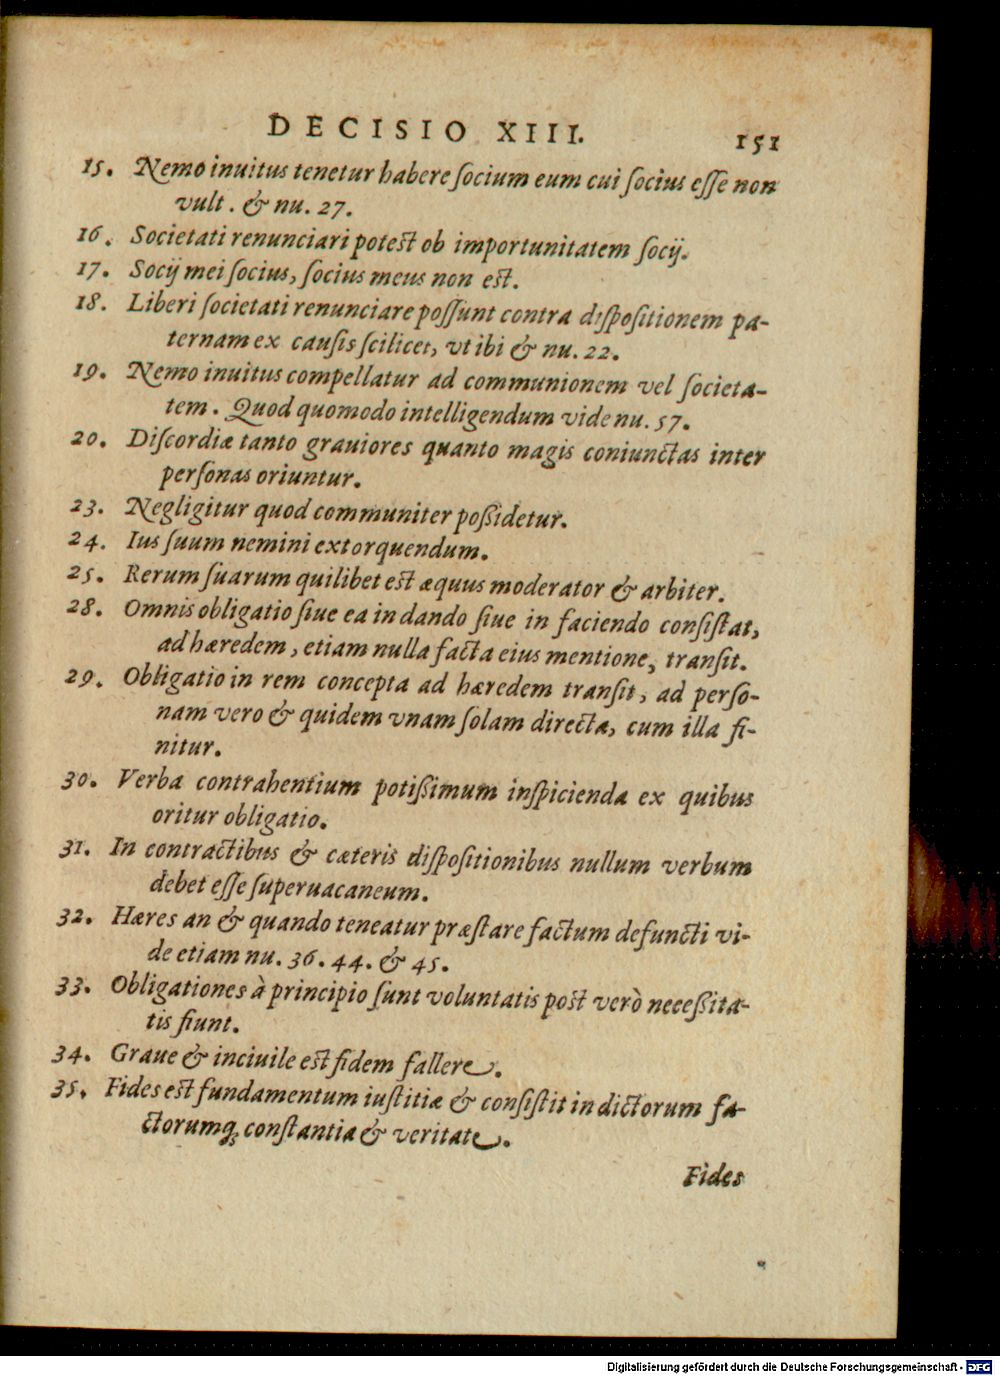 DECISIO XIII. 151
15. Nemo inuitus tenetur habere ſocium eum cui ſocius eſſe non
vult. & nu. 27.
16. Societati renunciari poteſt ob importunitatem ſocij.
17. Socij mei ſocius, ſocius meus non eſt.
18. Liberi ſocietati renunciare poſſunt contra diſpoſitionem pa-
ternam ex cauſis ſcilicet, vt ibi & nu. 22.
19. Nemo inuitus compellatur ad communionem vel ſocieta-
tem. Quod quomodo intelligendum vide nu. 57.
20. Diſcordiæ tanto grauiores quanto magis coniunctas inter
perſonas oriuntur.
23. Negligitur quod communiter poßidetur.
24. Ius ſuum nemini extorquendum.
25. Rerum ſuarum quilibet eſt æquus moderator & arbiter.
28. Omnis obligatio ſiue ea in dando ſiue in faciendo conſiſtat,
ad hæredem, etiam nulla facta eius mentione, tranſit.
29. Obligatio in rem concepta ad hæredem tranſit, ad perſo-
nam vero & quidem vnam ſolam directa, cum illa fi-
nitur.
30. Verba contrahentium potißimum inſpicienda ex quibus
oritur obligatio.
31. In contractibus & cæteris diſpoſitionibus nullum verbum
debet eſſe ſuperuacaneum.
32. Hæres an & quando teneatur præſtare factum defuncti vi-
de etiam nu. 36. 44. & 45.
33. Obligationes à principio ſunt voluntatis poſt verò neceßita-
tis fiunt.
34. Graue & inciuile eſt fidem fallere.
35. Fides eſt fundamentum iuſtitiæ & conſiſtit in dictorum fa-
ctorumq; conſtantia & veritate.
Fides
Digitalisierung gefördert durch die Deutsche Forschungsgemeinschaft - DFG